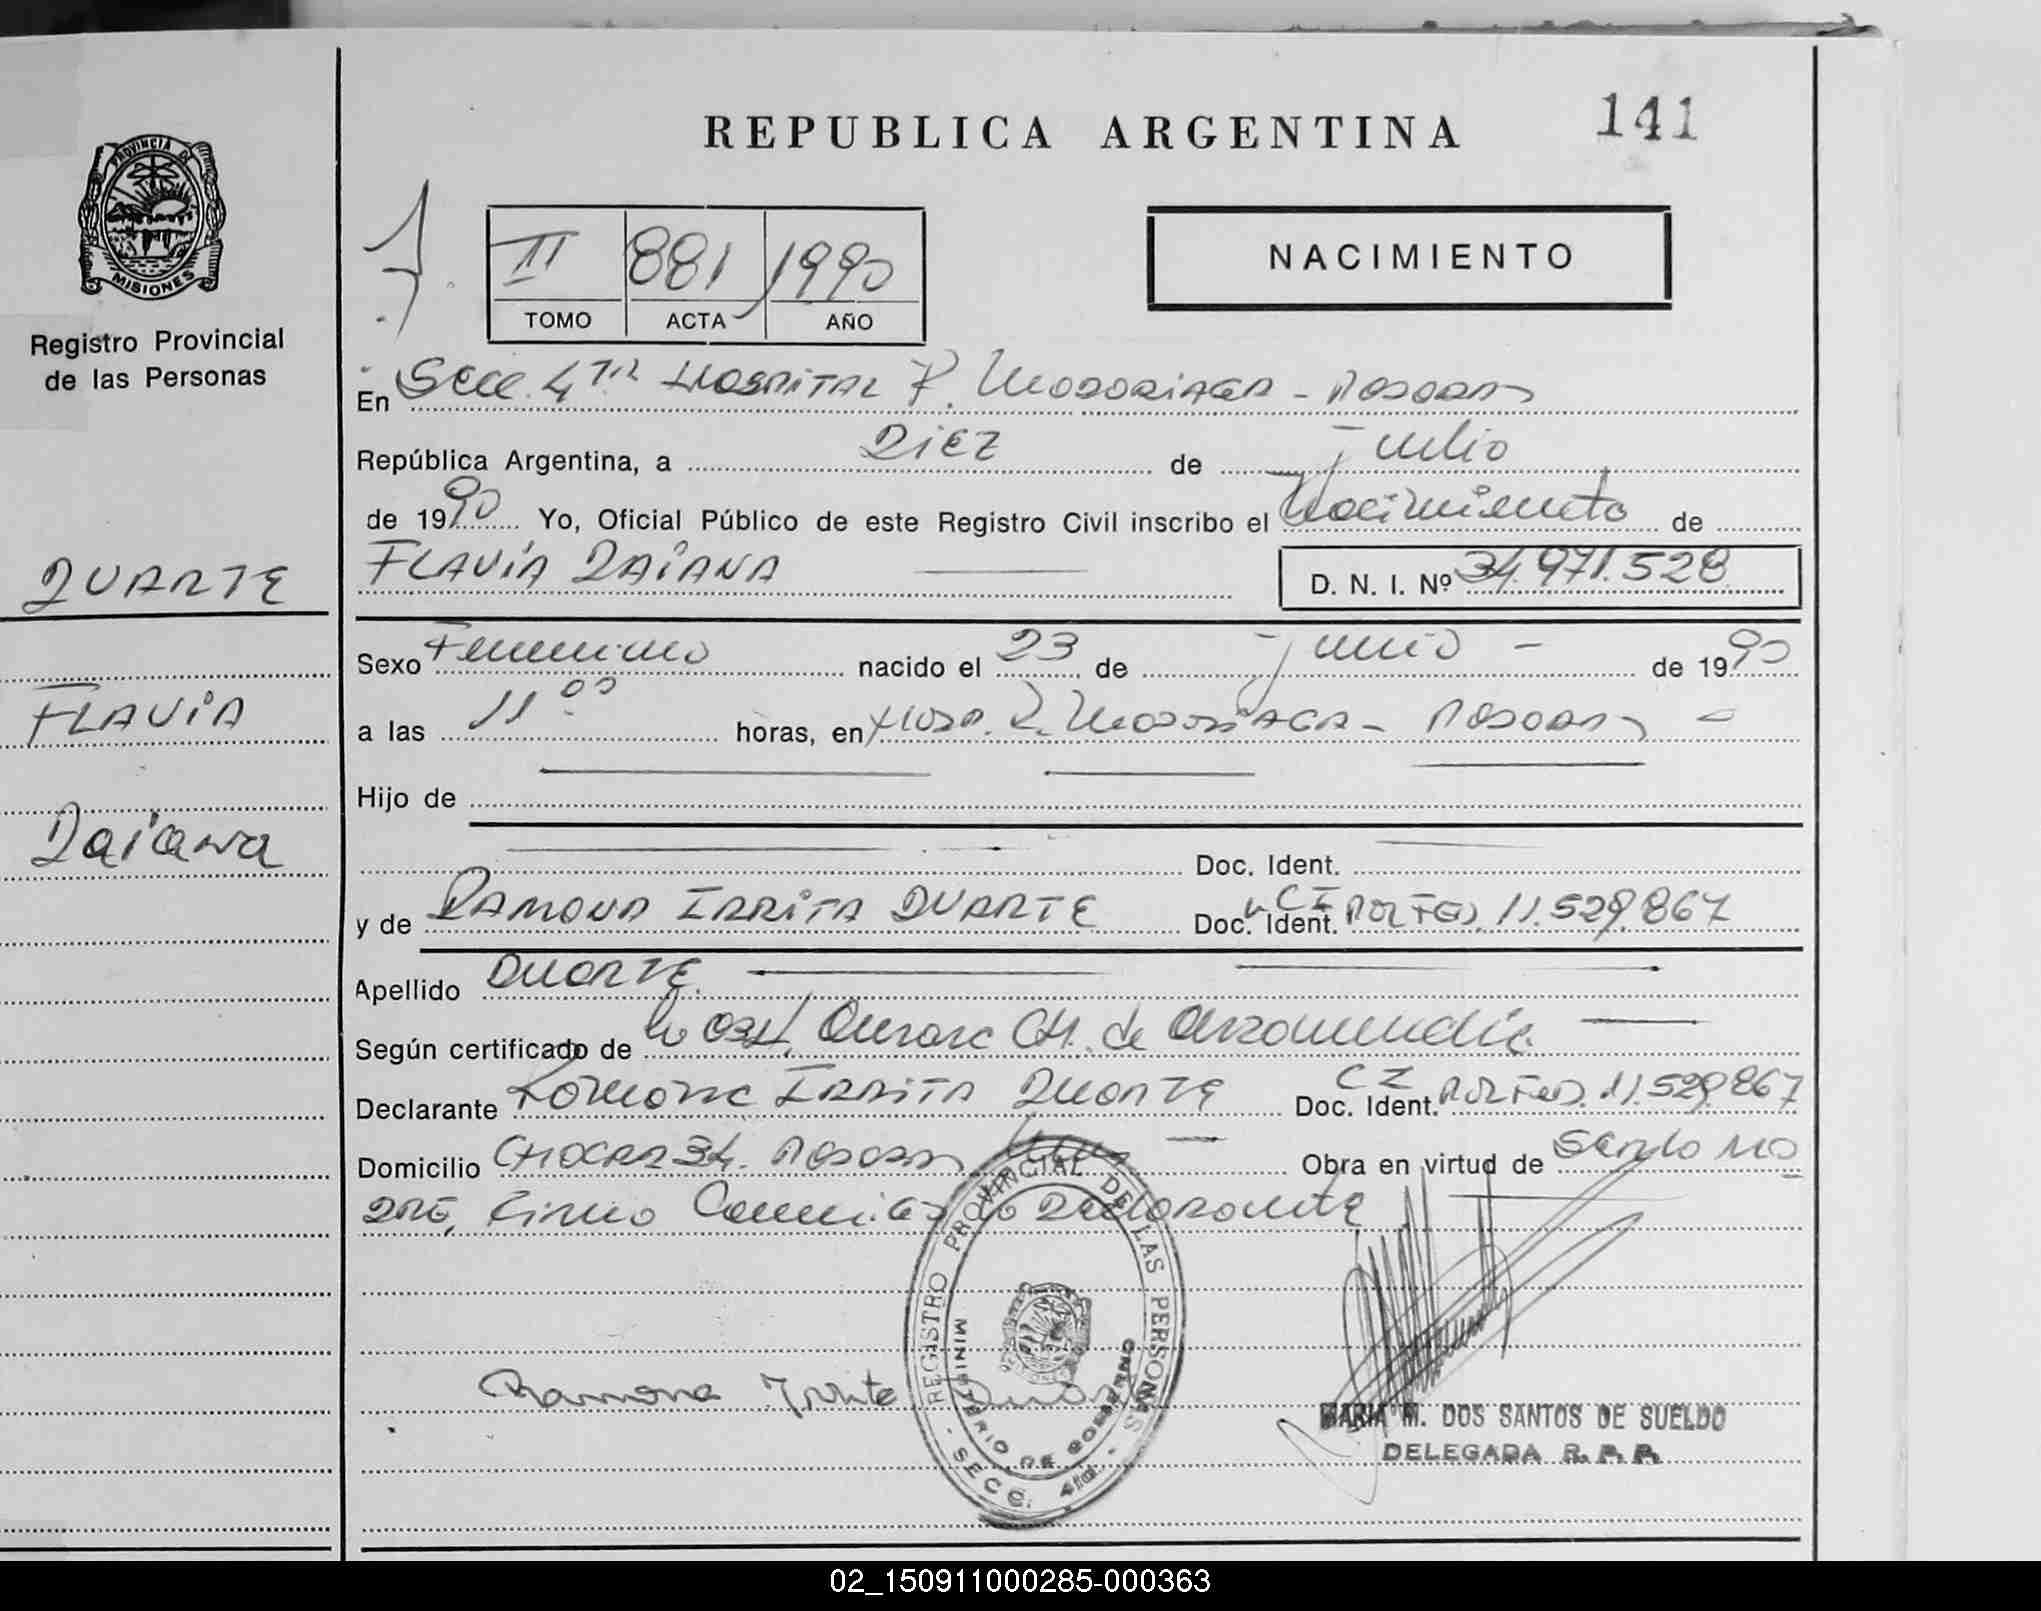 REPUBLICA ARGENTINA
141
PROVINCIA DE
MISIONES
Registro Provincial
de las Personas
II 881 1990
TOMO ACTA AÑO
NACIMIENTO
En Secc. 4ta Hospital R. Madariaga - Posadas
República Argentina, a DIEZ de julio
de 1990 Yo, Oficial Público de este Registro Civil inscribo el Nacimiento de
FLAVIA DAIANA
D. N. I. Nº 34.971.528
DUARTE
FLAVIA
Daiana
Sexo Femenino nacido el 23 de junio - de 1990
a las 11 00 horas, en Hosp. R. Madariaga - Posadas -
Hijo de
Doc. Ident.
y de RAMONA IRRITA DUARTE Doc. Ident. CI POL FED. 11.529.867
Apellido DUARTE
Según certificado de la Obst. CH. de
Declarante Ramona IRRITA DUARTE Doc. Ident. CI POL FED. 11.529.867
Domicilio CHACRA 34. POSADAS Mnes - Obra en virtud de ser la MA
DRE, Firma la Declarante
Ramona Irrita Duarte
REGISTRO PROVINCIAL DE LAS PERSONAS
MINISTERIO DE GOBIERNO
- SECC. 4ta. -
MARIA M. DOS SANTOS DE SUELDO
DELEGADA R. P. P.
02_150911000285-000363